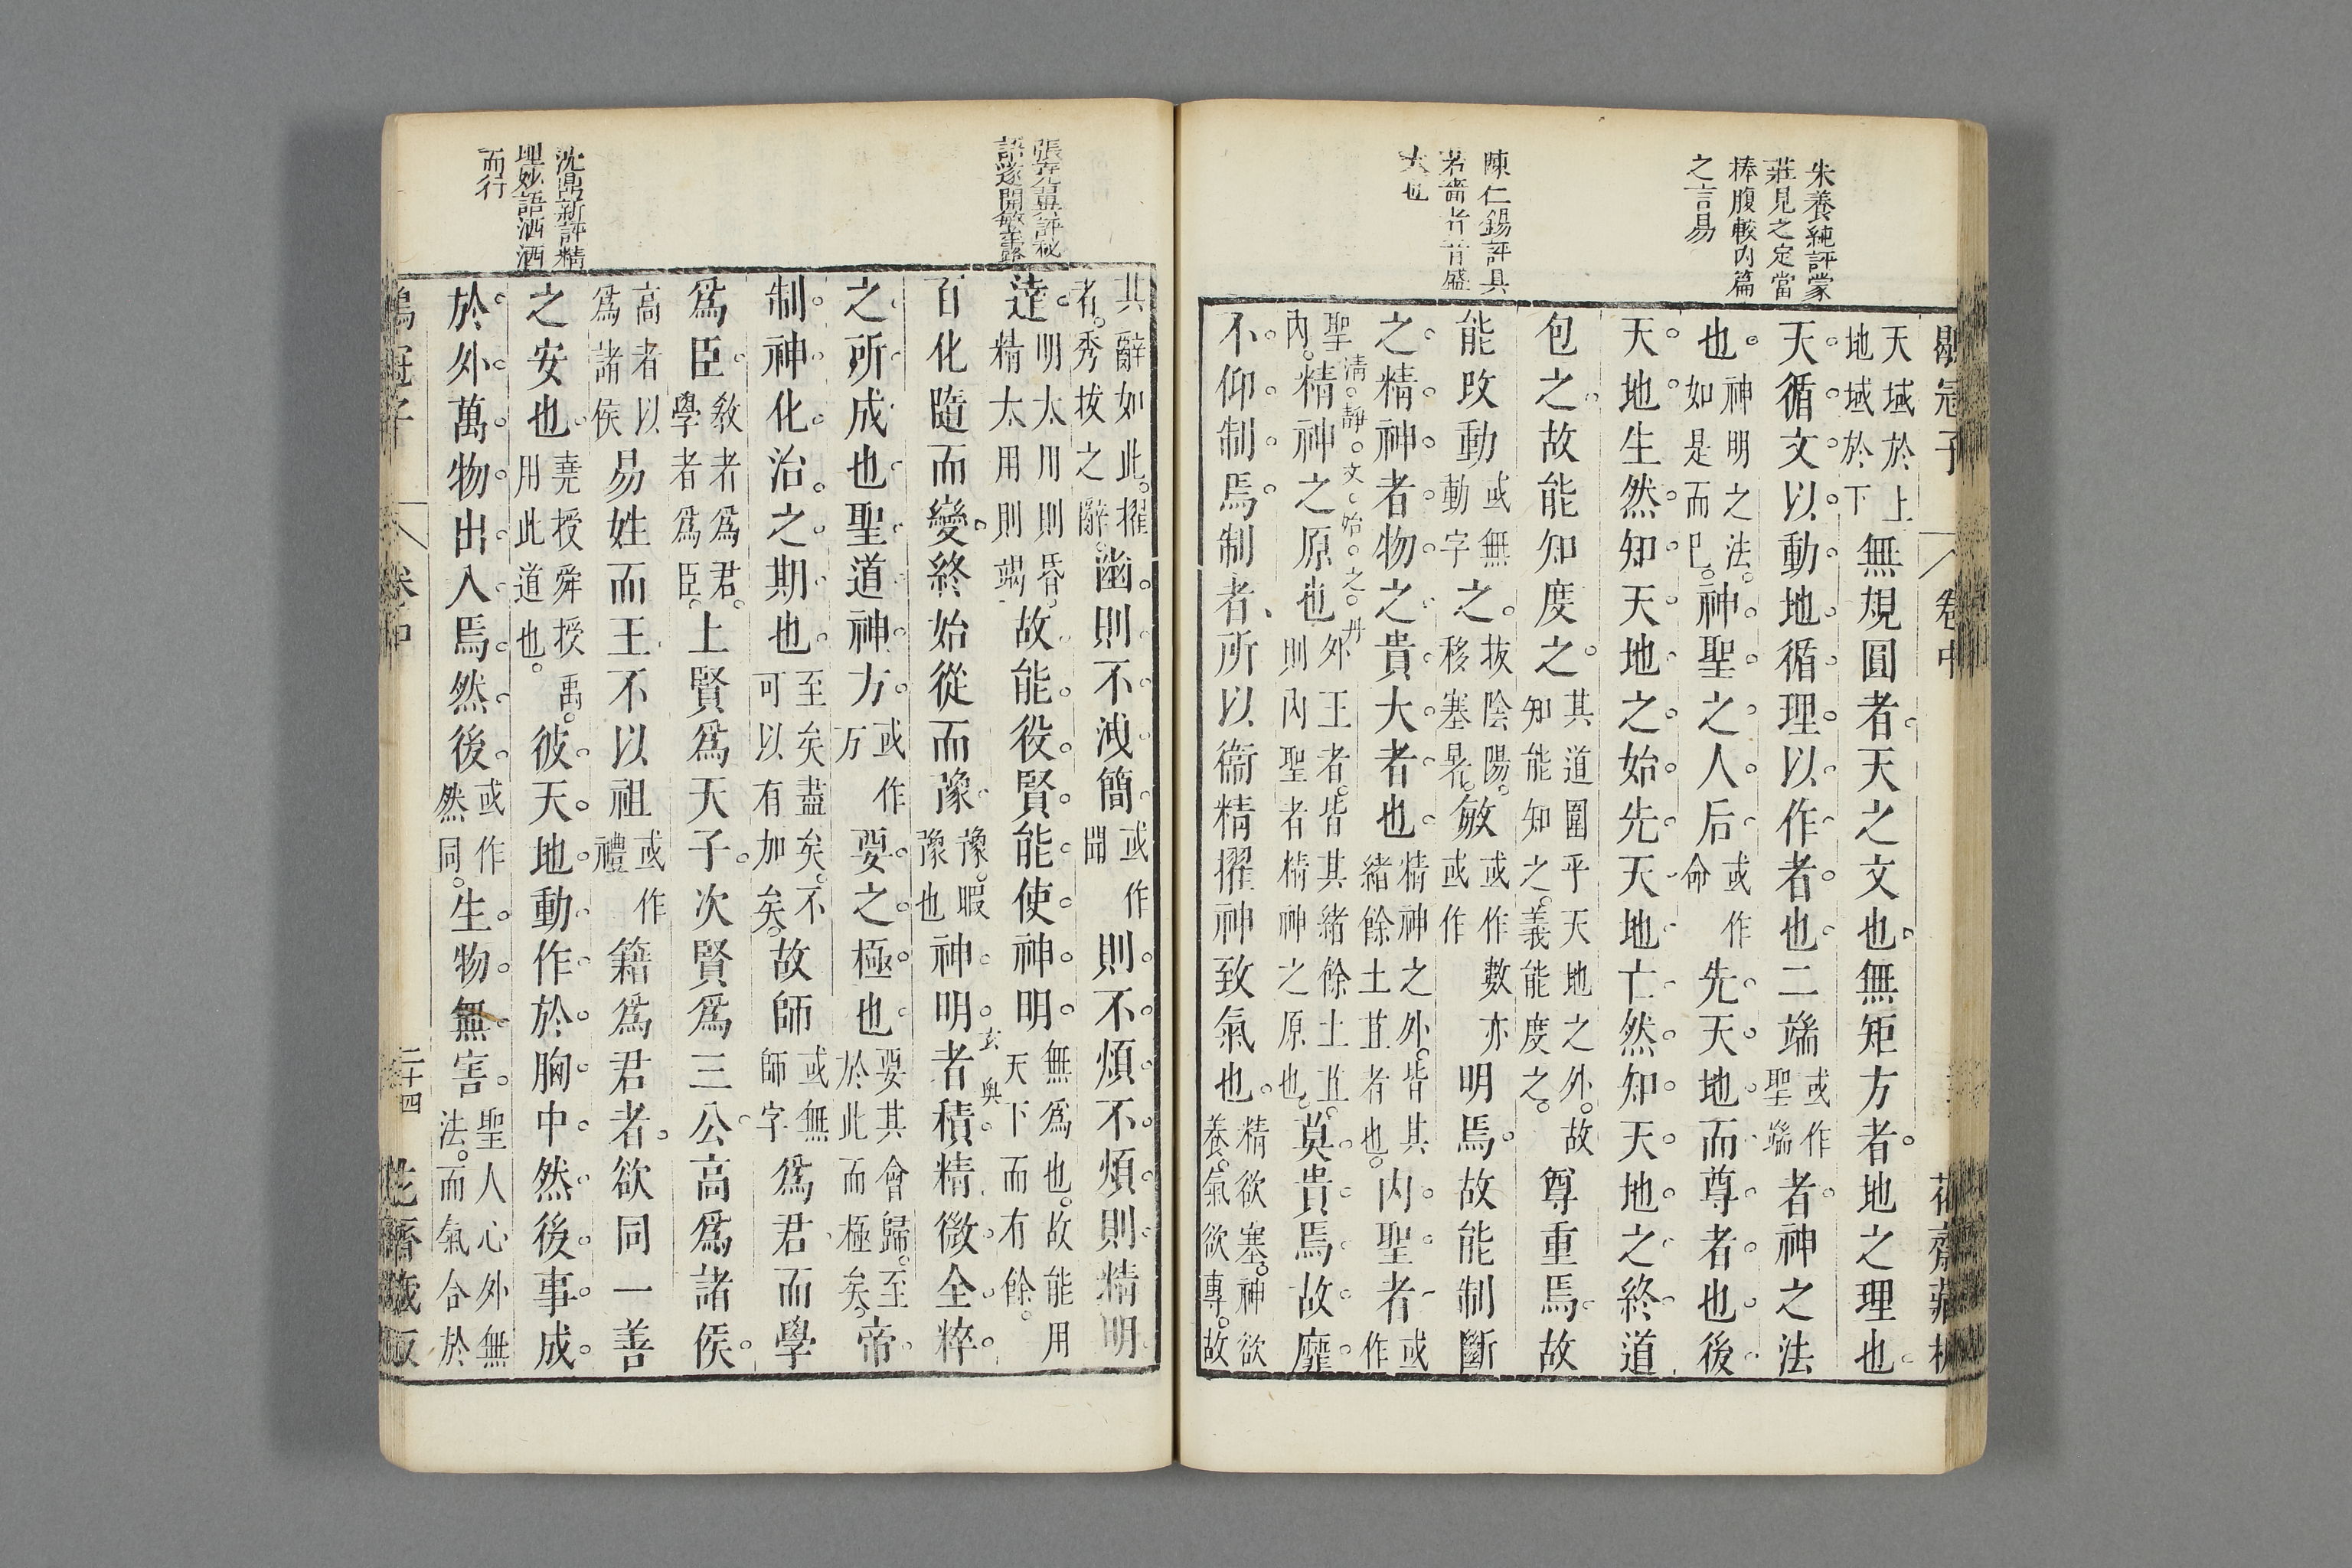 朱養純評蒙
莊見之定當
棒腹較內篇
之言易
陳仁錫評具
大也
冠子 卷中 花齋藏板
天域於上
地域於下
無規圓者天之文也無矩方者地之理也
天循文以動地循理以作者也二端
或作
聖端
者神之法
也
神明之法
如是而巳
神聖之人后
或作
命
先天地而尊者也後
天地生然知天地之始先天地亡然知天地之終道
包之故能知度之
其道圍乎天地之外故
知能知之義能度之
尊重焉故
能改動
或無
動字
之
拔陰陽
移塞晷
敏
或作數亦
或作
明焉故能制斷
之精神者物之貴大者也
精神之外皆其
緒餘土苴者也
內聖者
或
作
聖
內
精神之原也
外王者皆其緒餘土苴
則內聖者精神之原也
莫貴焉故靡
清靜文始之丹
不仰制焉制者所以衞精擢神致氣也
精欲塞神欲
養氣欲專故
張
語遂開敏
沈鼎新評精
理妙語洒洒
而行
其辭如此擢
者秀拔之辭
㴠則不洩簡
或作
開
則不煩不煩則精明
達
明太用則昏
精太用則竭
故能役賢能使神明
無爲也故能用
天下而有餘
百化隨而變終始從而豫
豫暇
豫也
神明者積精微全粹
玄奧
之所成也聖道神方
或作
万
要之極也
要其會歸至
於此而極矣
帝
制神化治之期也
至矣盡矣不
可以有加矣
故師
或無
師字
爲君而學
爲臣
敎者爲君
學者爲臣
上賢爲天子次賢爲三公高爲諸侯
高者以
爲諸侯
易姓而王不以祖
或作
禮
籍爲君者欲同一善
之安也
堯授舜授禹
用此道也
彼天地動作於胸中然後事成
於外萬物出入焉然後
或作
然同
生物無害
聖人心外無
法而氣合於
冠子 卷中 二十四 花齋藏版